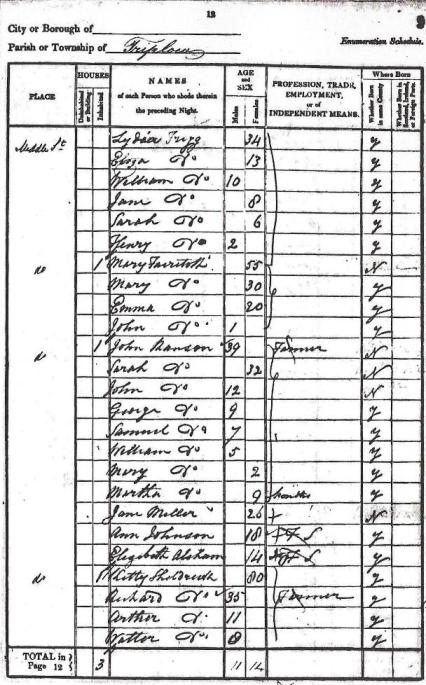 12
9
City or Borough of
Parish or Township of Triplow
Enumeration Schedule.
PLACE
HOUSES
Uninhabited or Building
Inhabited
NAMES of each Person who abode therein the preceding Night.
AGE and SEX
Males
Females
PROFESSION, TRADE, EMPLOYMENT, or of INDEPENDENT MEANS.
Where Born
Whether Born in same County
Whether Born in Scotland, Ireland, or Foreign Parts.
Middle St Lydia Trigg 34 y
Eliza Do 13 y
William Do 10 y
Jane Do 8 y
Sarah Do 6 y
Henry Do 2 y
do 1 Mary 55 N
Mary Do 30 y
Emma Do 20 y
John Do 1 y
do 1 John Ranson 39 Farmer N
Sarah Do 32 N
John Do 12 N
George Do 9 y
Samuel Do 7 y
William Do 5 y
Mary Do 2 y
Martha Do 9 months y
Jane Miller 26 N
Ann Johnson 18 F S y
Elizabeth 14 F S y
do 1 Kitty 80 y
Richard Do 35 Farmer y
Arther Do 11 y
Walter Do 8 y
TOTAL in Page 12 3 11 14